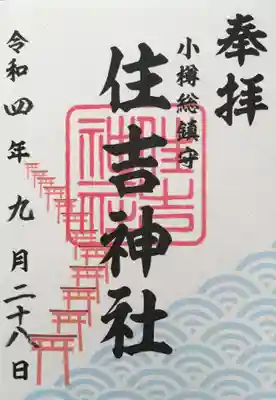 奉拝
小樽総鎮守
住吉神社
令和四年九月二十八日
住吉神社